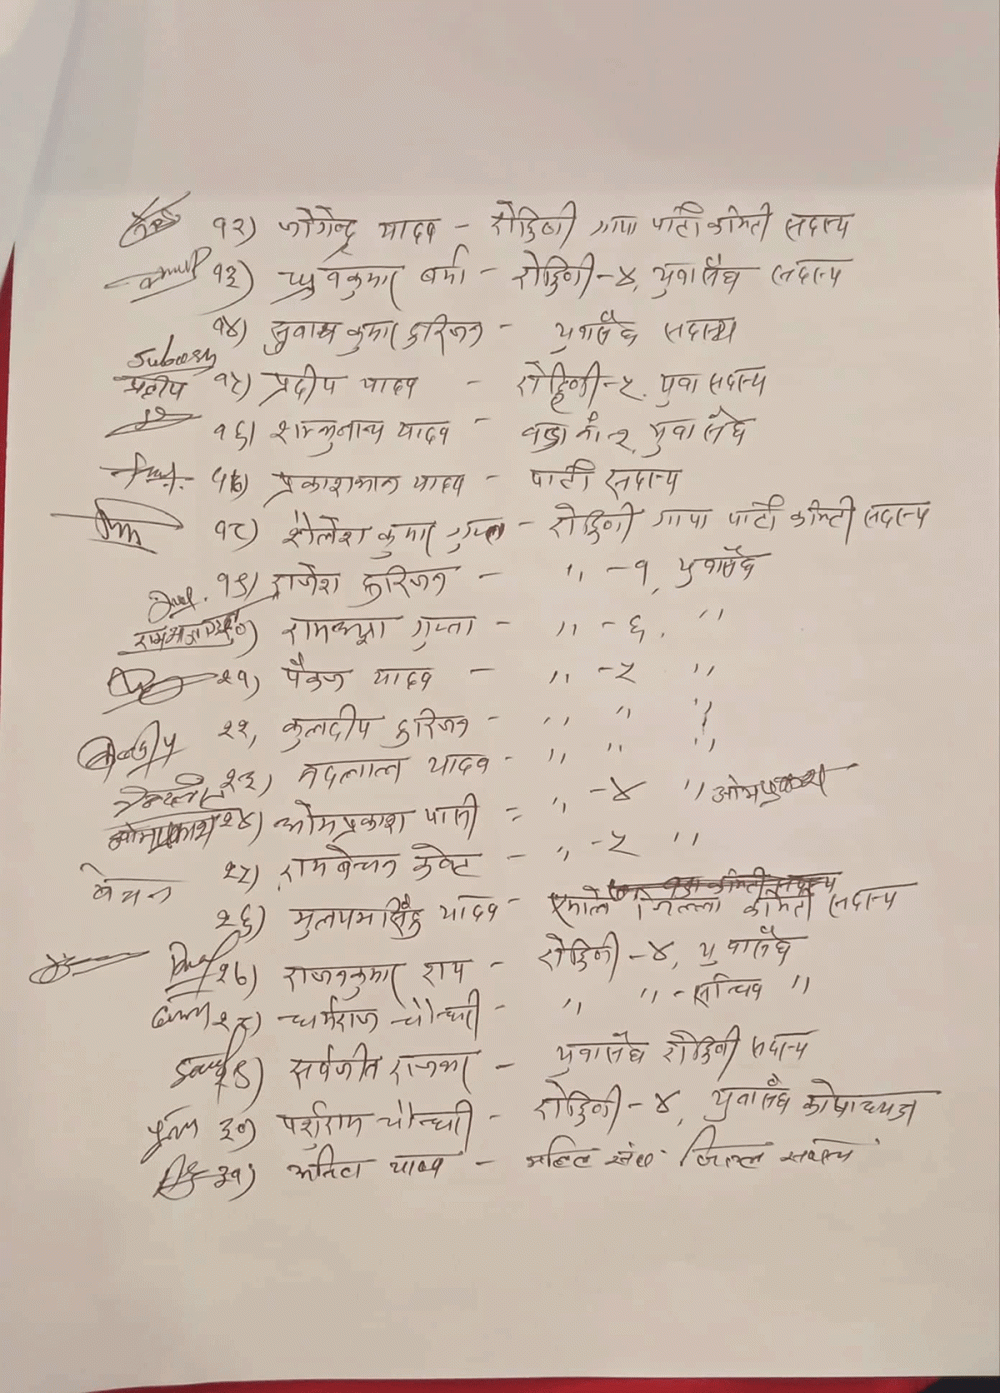 १२) जोगेन्द्र यादव - रोहिणी गापा पार्टी कमिटी सदस्य
१३) ध्रुवकुमार वर्मा - रोहिणी-४, युवासंघ सदस्य
१४) सुवास कुमार हरिजन - युवासंघ सदस्य
Subash
प्रदीप १५) प्रदीप यादव - रोहिणी-२, युवा सदस्य
१६) शम्भुनाथ यादव - वडा नं. २, युवासंघ
१७) प्रकाशलाल यादव - पार्टी सदस्य
१८) शैलेश कुमार गुप्ता - रोहिणी गापा पार्टी कमिटी सदस्य
१९) राजेश हरिजन - ,, -१, युवासंघ
) गुप्ता - ,, -६, ,,
२१) पंकज यादव - ,, -२ ,,
२२, कुलदीप हरिजन - ,, ,, ,,
२३) नंदलाल यादव - ,, ,, ,,
ओमप्रकाश २४) ओमप्रकाश पासी - ,, -४ ,, ओमप्रकाश
बेचन २५) रामबेचन केवट - ,, -२ ,,
२६) मुलायम सिंह यादव - एमाले जिल्ला कमिटी सदस्य
२७) राजनकुमार राय - रोहिणी-४, युवासंघ
२८) धर्मराज चौधरी - ,, ,, - सचिव ,,
) सर्वजीत - युवासंघ रोहिणी सदस्य
३०) पर्शुराम चौधरी - रोहिणी-४, युवासंघ कोषाध्यक्ष
३१) अनिता यादव - जिल्ला सदस्य